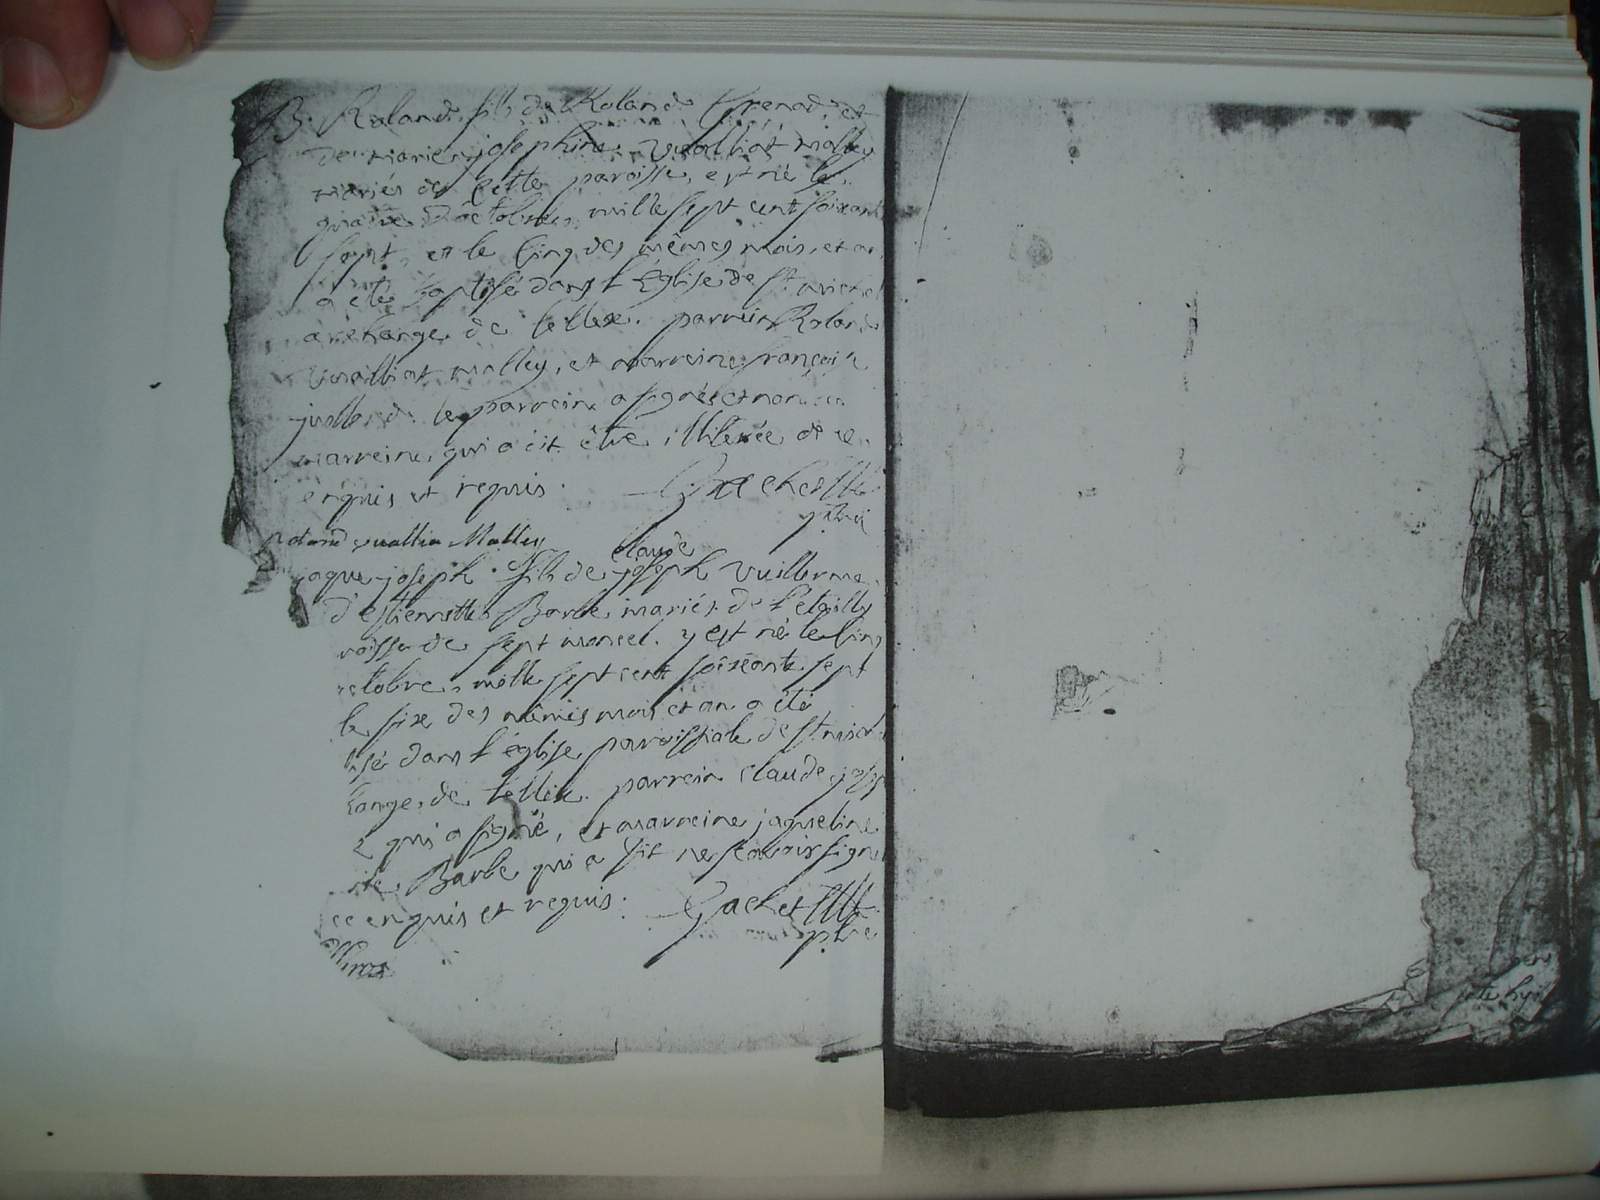 B. Roland, fils de Roland Grenad, et
de marie josephine Vualliat malley
mariés de cette paroisse, est né le
quatre d'octobre, mille sept cent soixant
sept, et le cinq des mêmes mois, et an
a été baptisé dans l'église de St michel
archange de lellex. parrein Roland
vualliat malley, et marreine françoise
le parrein a signé et non la
marreine, qui a dit être illiterée de ce
enquis et requis. Gachet
ptre
roland vuallia Malley
claude
jaque joseph. fils de joseph Vuillerme
d'estiennette Barbe mariés de
roisse de sept moncel. y est né le cinq
octobre, mille sept cent soixante sept
le six des mêmes mois et an a été
tisé dans l'église paroissiale de St mich
change, de lellex. parrein claude josep
e qui a signé, et marreine jaqueline
Barbe qui a dit ne scavoir signe
ce enquis et requis. Gachet
ptre